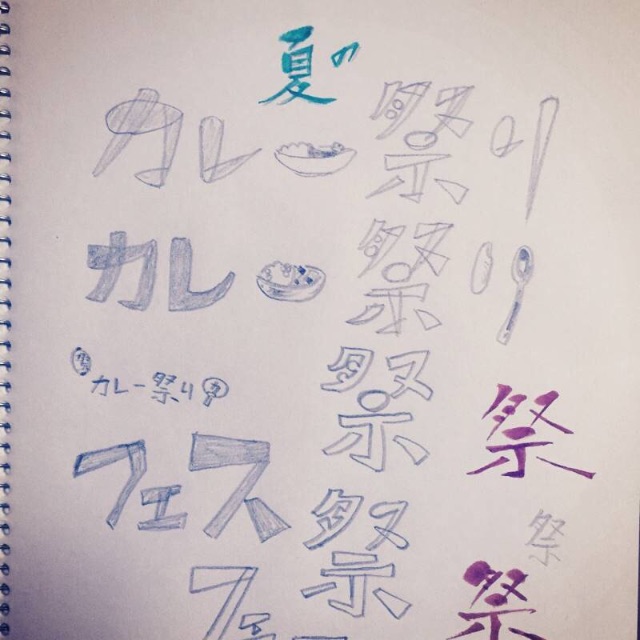 夏の
カレー祭り
カレー祭り
祭
カレー祭り
祭
フェス
祭
祭
フェ
祭